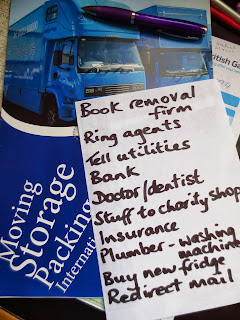 Book removal
firm
Ring agents
Tell utilities
Bank
Doctor/dentist
Stuff to charity shop
Insurance
Plumber - washing
machine
Buy new fridge
Redirect mail
Moving
Storage
Packing
Internati
ritish Ga